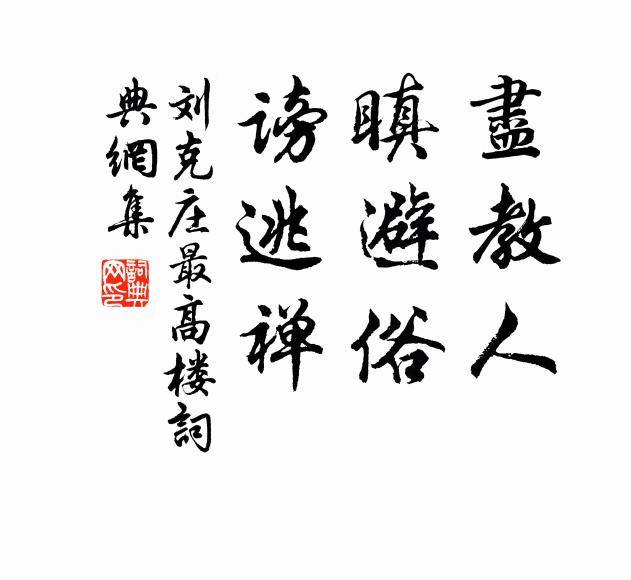 盡教人
瞋避俗
謗逃禅
刘克庄最高楼詞
典網集
詞典
网印